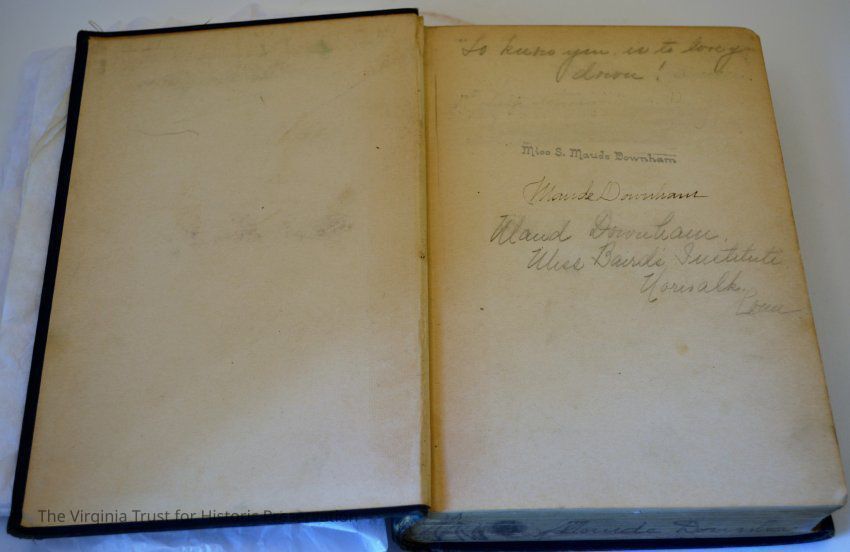 "To know you is to love y
down!
Miss S. Maude Downham
Maude Downham
Maud Downham.
Miss Baird's Institute
Norwalk.
Conn
Maude Downham
The Virginia Trust for Historic